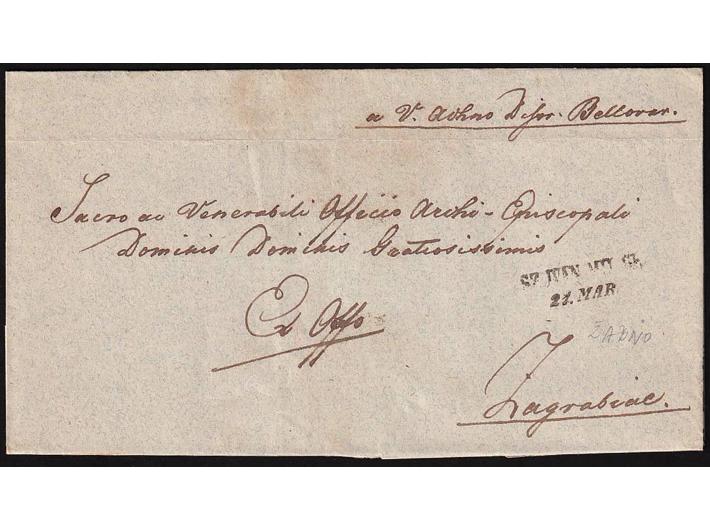 a V. Adhno Disr. Bellovar.
Sacro ac Venerabili Officio Archi-Episcopali
Dominis Dominis Gratiosissimis
SZ. IVAN
21. MAR
Ex Offo
ZADNO
Zagrabiae.